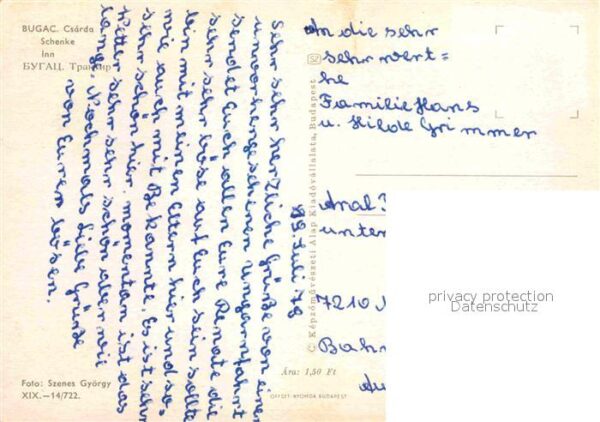 BUGAC. Csárda
Schenke
Inn
БУГАЦ. Трактир
Sehr sehr herzliche Grüße von einer
unvorhergesehenen Ungarnfahrt
sendet Euch allen Eure Renate die
sehr sehr böse auf Euch sein sollte
bin mit meinen Eltern hier und so=
wie auch mit Bekannte. Es ist sehr
sehr schön hier. momentan ist das
Wetter sehr sehr schön aber wie
lange. Nochmals liebe Grüße
von Euren bösen.
29. Juli 78
An die sehr
sehr wert=
he
Familie Hans
u. Hilde Grimmer
Anal
unter
7210
Bahn
Au
© Képzőművészeti Alap Kiadóvállalata, Budapest
Ára: 1,50 Ft
OFFSET-NYOMDA BUDAPEST
Foto: Szenes György
XIX.—14/722.
privacy protection
Datenschutz